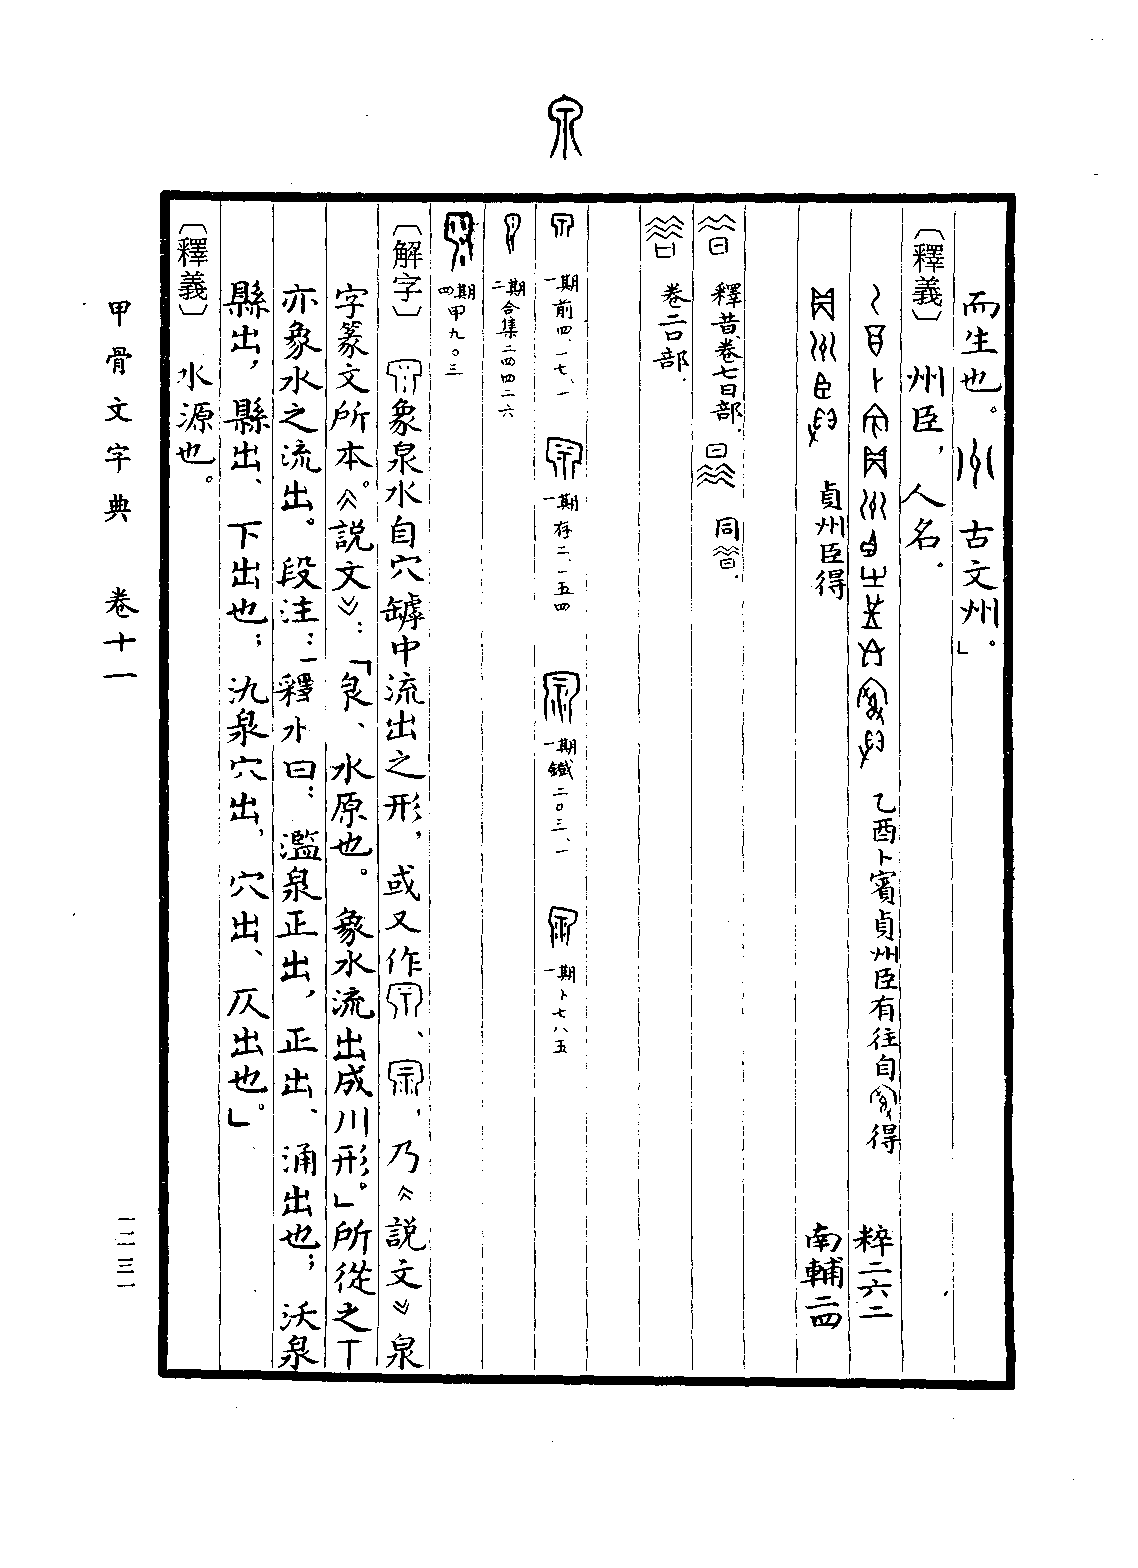 而生也。古文州」。
〔釋義〕州臣，人名。
乙酉卜賓貞州臣有往自得 粹二六二
貞州臣得 南輔二四
釋昔，卷七日部。同。
卷二口部。
一期前四、一七、一 一期存二、一五四 一期鐵二〇三、一 一期卜七八五
二期合集二四四二六
四期甲九〇三
〔解字〕象泉水自穴罅中流出之形，或又作、，乃《説文》泉
字篆文所本。《説文》：「泉、水原也。象水流出成川形。」所從之丅
亦象水之流出。段注：「釋水曰：濫泉正出，正出、涌出也；沃泉
縣出，縣出、下出也；氿泉穴出，穴出、仄出也。」
〔釋義〕水源也。
甲骨文字典 卷十一
一二三一